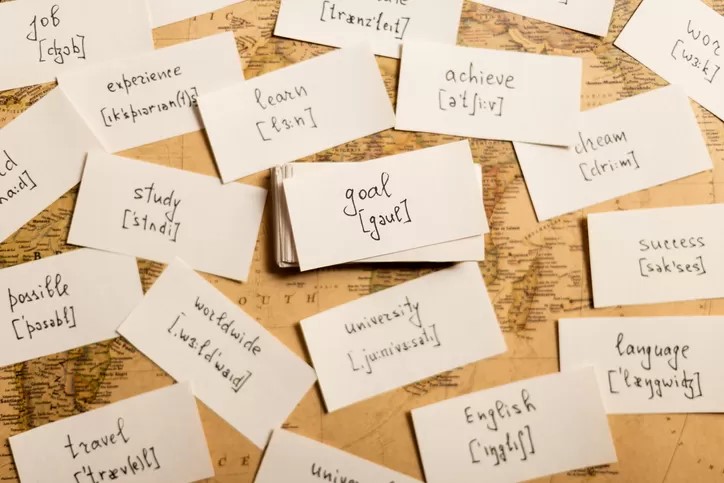 job
[dʒɔb]
[trænz'leit]
wor
[wɜ:k]
experience
[ik'spiəriən(t)s]
learn
[lɜ:n]
achieve
[ə'tʃi:v]
dream
[dri:m]
study
['stʌdi]
goal
[gəul]
success
[sək'ses]
possible
['pɔsəbl]
worldwide
[ˌwɜ:ld'waid]
university
[ˌju:nivɜ:səti]
language
['læŋgwidʒ]
travel
['træv(ə)l]
English
['iŋgliʃ]
univer